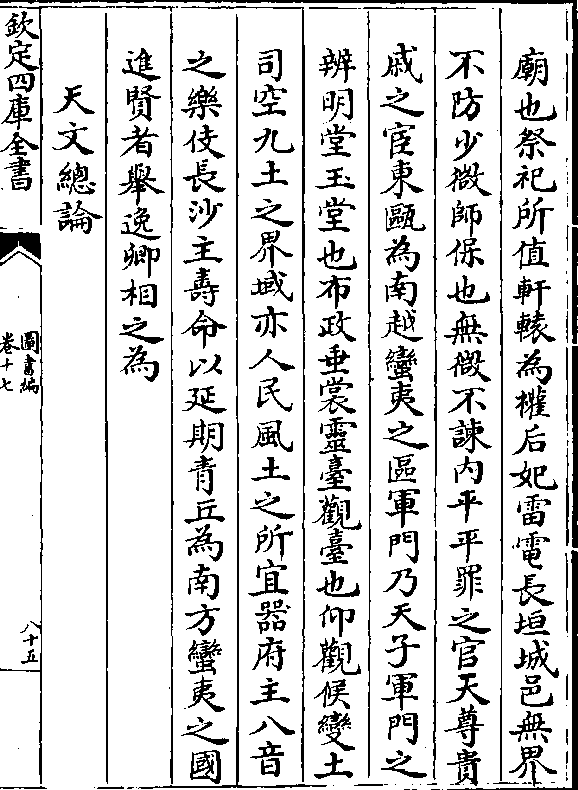 廟也祭祀所值軒轅為權后妃雷電長垣城邑無界
不防少微師保也無微不諫内平平罪之官天尊貴
戚之宦東甌為南越蠻夷之區軍門乃天子軍門之
辨明堂玉堂也布政垂裳靈臺觀臺也仰觀候變土
司空九土之界域亦人民風土之所宜器府主八音
之樂伎長沙主壽命以延期青丘為南方蠻夷之國
進賢者舉逸卿相之為
天文總論
欽定四庫全書
圖書編
卷十七
八十五